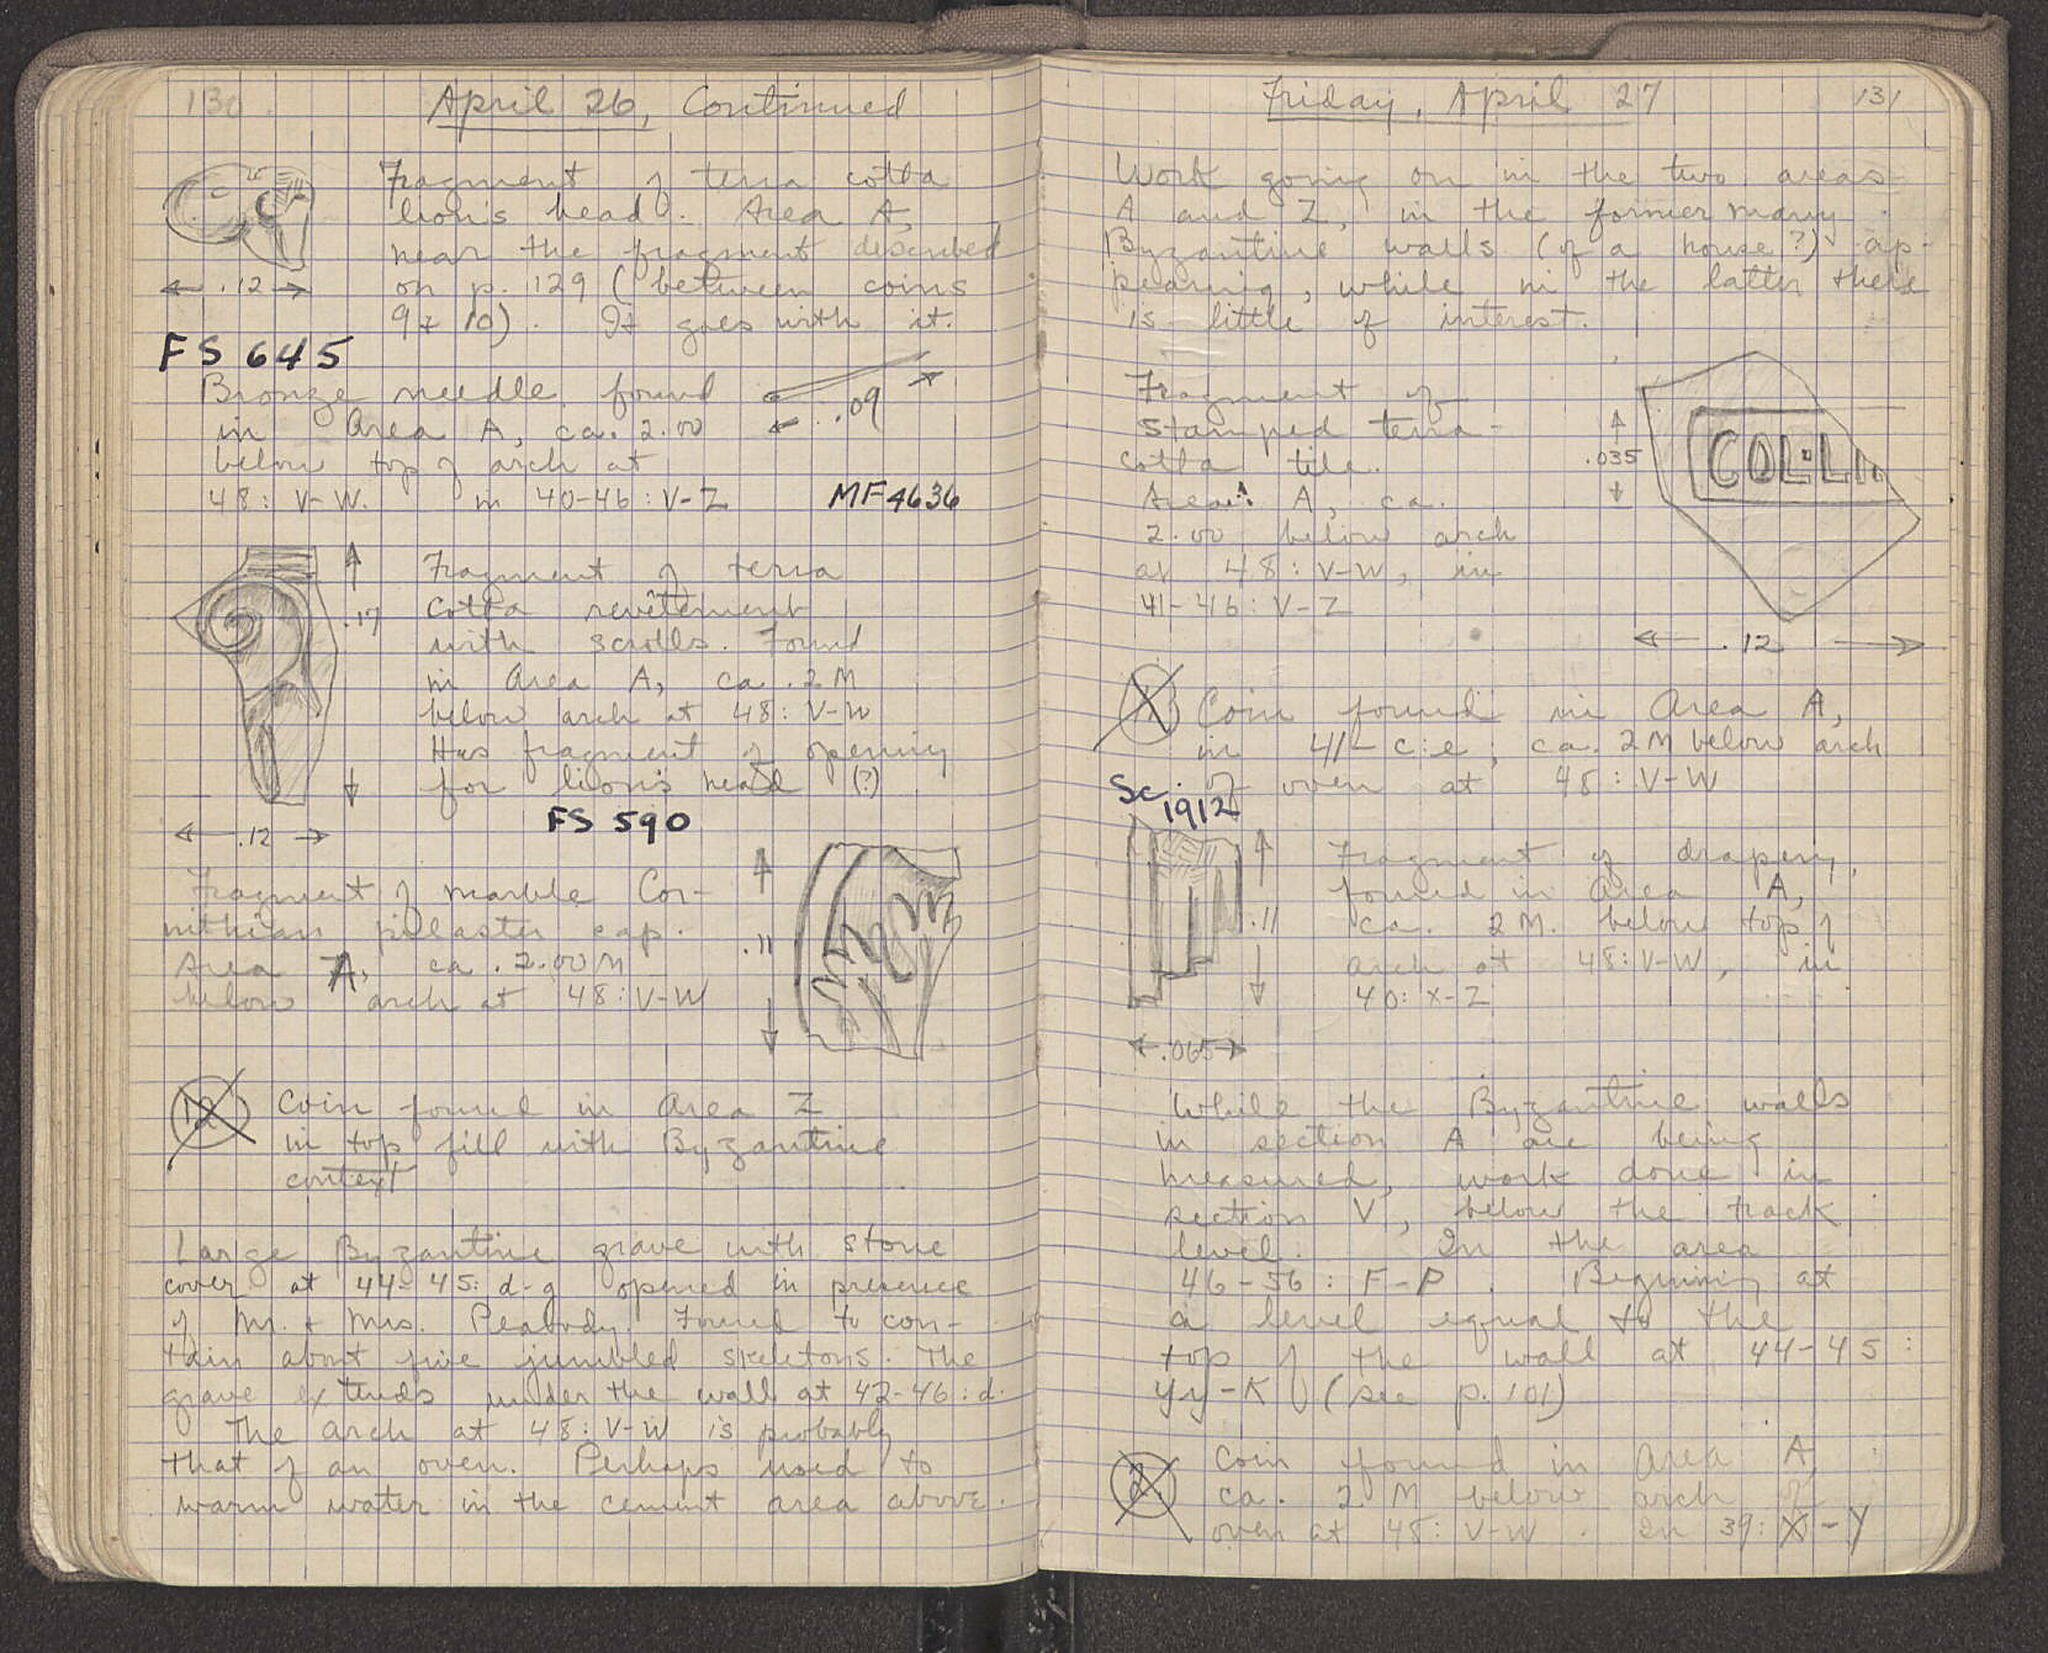 130
April 26, Continued
Fragment of terra cotta
lion's head. Area A,
near the fragment described
on p. 129 (between coins
9 & 10). It goes with it.
.12
FS 645
Bronze needle found
in Area A, ca. 2.00
below top of arch at
48: V-W. in 40-46: V-Z
.09
MF 4636
Fragment of terra
cotta revêtement
with scrolls. Found
in Area A, ca. 2 M
below arch at 48: V-W
Has fragment of opening
for lion's head (?)
.17
.12
FS 590
Fragment of marble Cor-
inthian pilaster cap.
Area A, ca. 2.00 M
below arch at 48: V-W
.11
12 Coin found in Area Z
in top fill with Byzantine
context
Large Byzantine grave with stone
cover at 44-45: d-g opened in presence
of Mr. & Mrs. Peabody. Found to con-
tain about five jumbled skeletons. The
grave extends under the wall at 42-46: d.
The arch at 48: V-W is probably
that of an oven. Perhaps used to
warm water in the cement area above.
Friday, April 27
131
Work going on in the two areas
A and Z, in the former many
Byzantine walls (of a house?) ap-
pearing, while in the latter there
is little of interest.
Fragment of
stamped terra-
cotta tile.
Area A, ca.
2.00 below arch
at 48: V-W, in
41-46: V-Z
.035
COL·L
.12
1 Coin found in Area A,
in 41- c:e, ca. 2 M below arch
of oven at 48: V-W
Sc. 1912
Fragment of drapery,
found in Area A,
ca. 2 M. below top of
arch at 48: V-W, in
40: X-Z
.11
.065
While the Byzantine walls
in section A are being
measured, work done in
section V, below the track
level. In the area
46-56: F-P. Beginning at
a level equal to the
top of the wall at 44-45:
yy-K (see p. 101)
2. Coin found in Area A,
ca. 2 M below arch of
oven at 48: V-W. In 39: X-Y